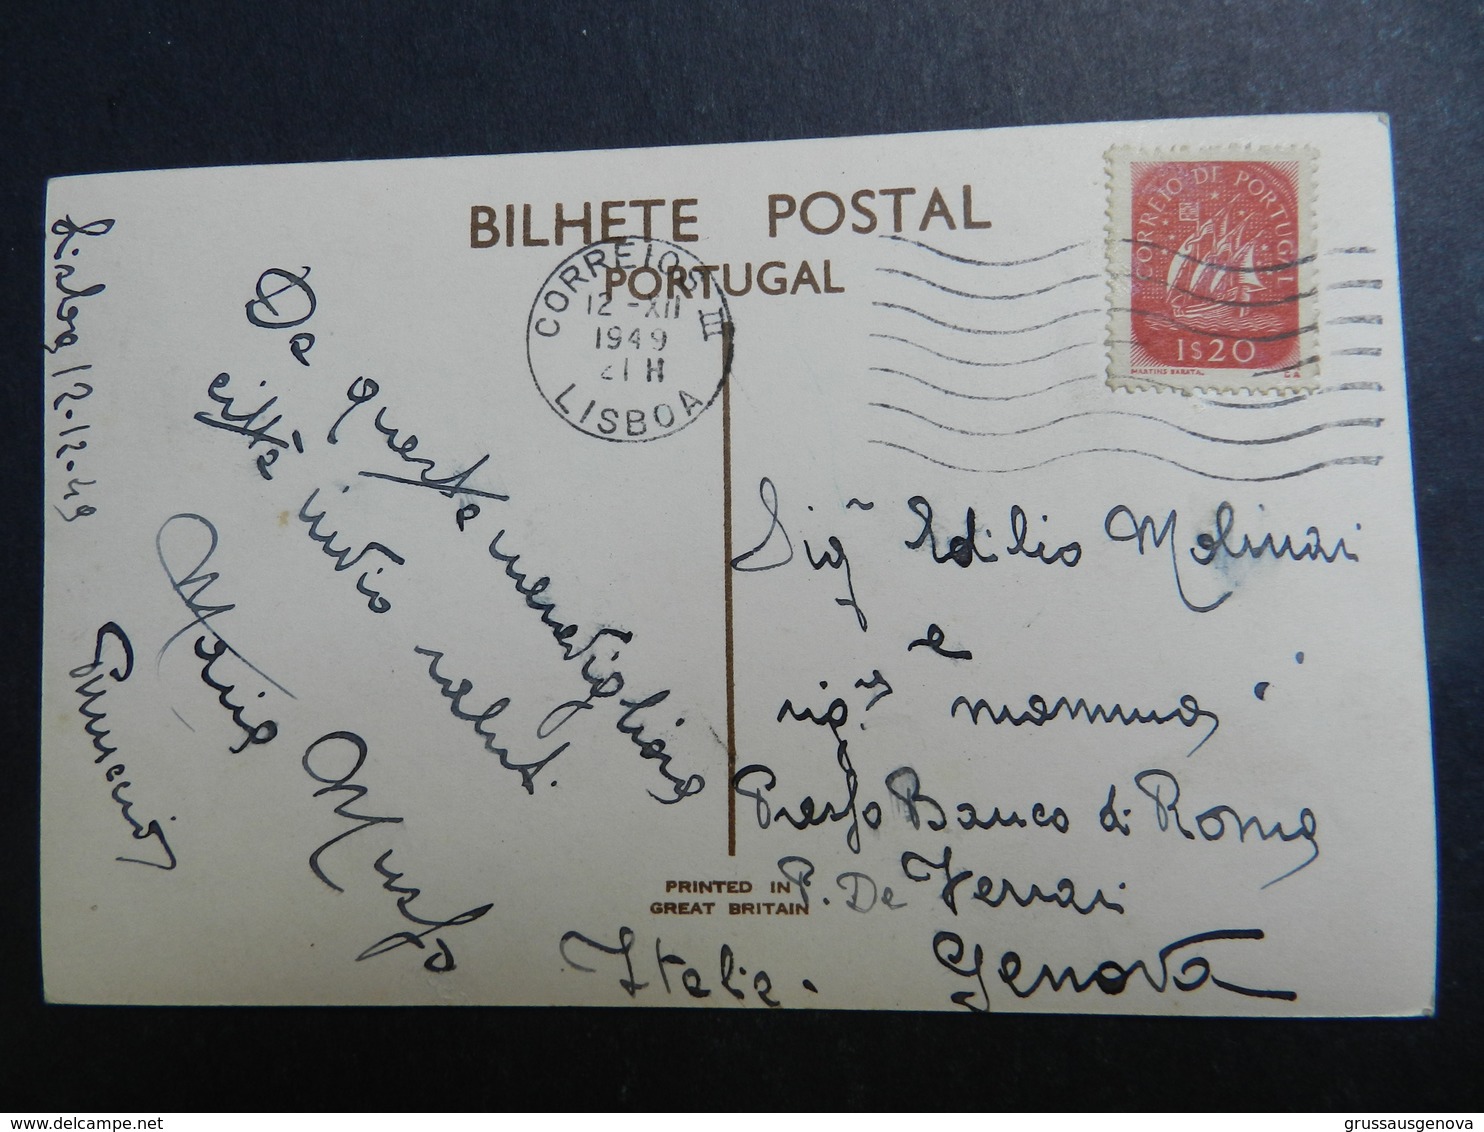 BILHETE POSTAL
PORTUGAL
CORREIOS III
12 - XII
1949
21 H
LISBOA
CORREIO DE PORTUGAL
1$20
MARTINS BARATA
Lisboa 12.12.49
Da questa meravigliosa
città invio saluti
Maria Musso
Sig Edilio Molinari
e
sig. mamma
Presso Banco di Roma
P. De Ferrari
Genova
Italia.
PRINTED IN
GREAT BRITAIN
grussausgenova